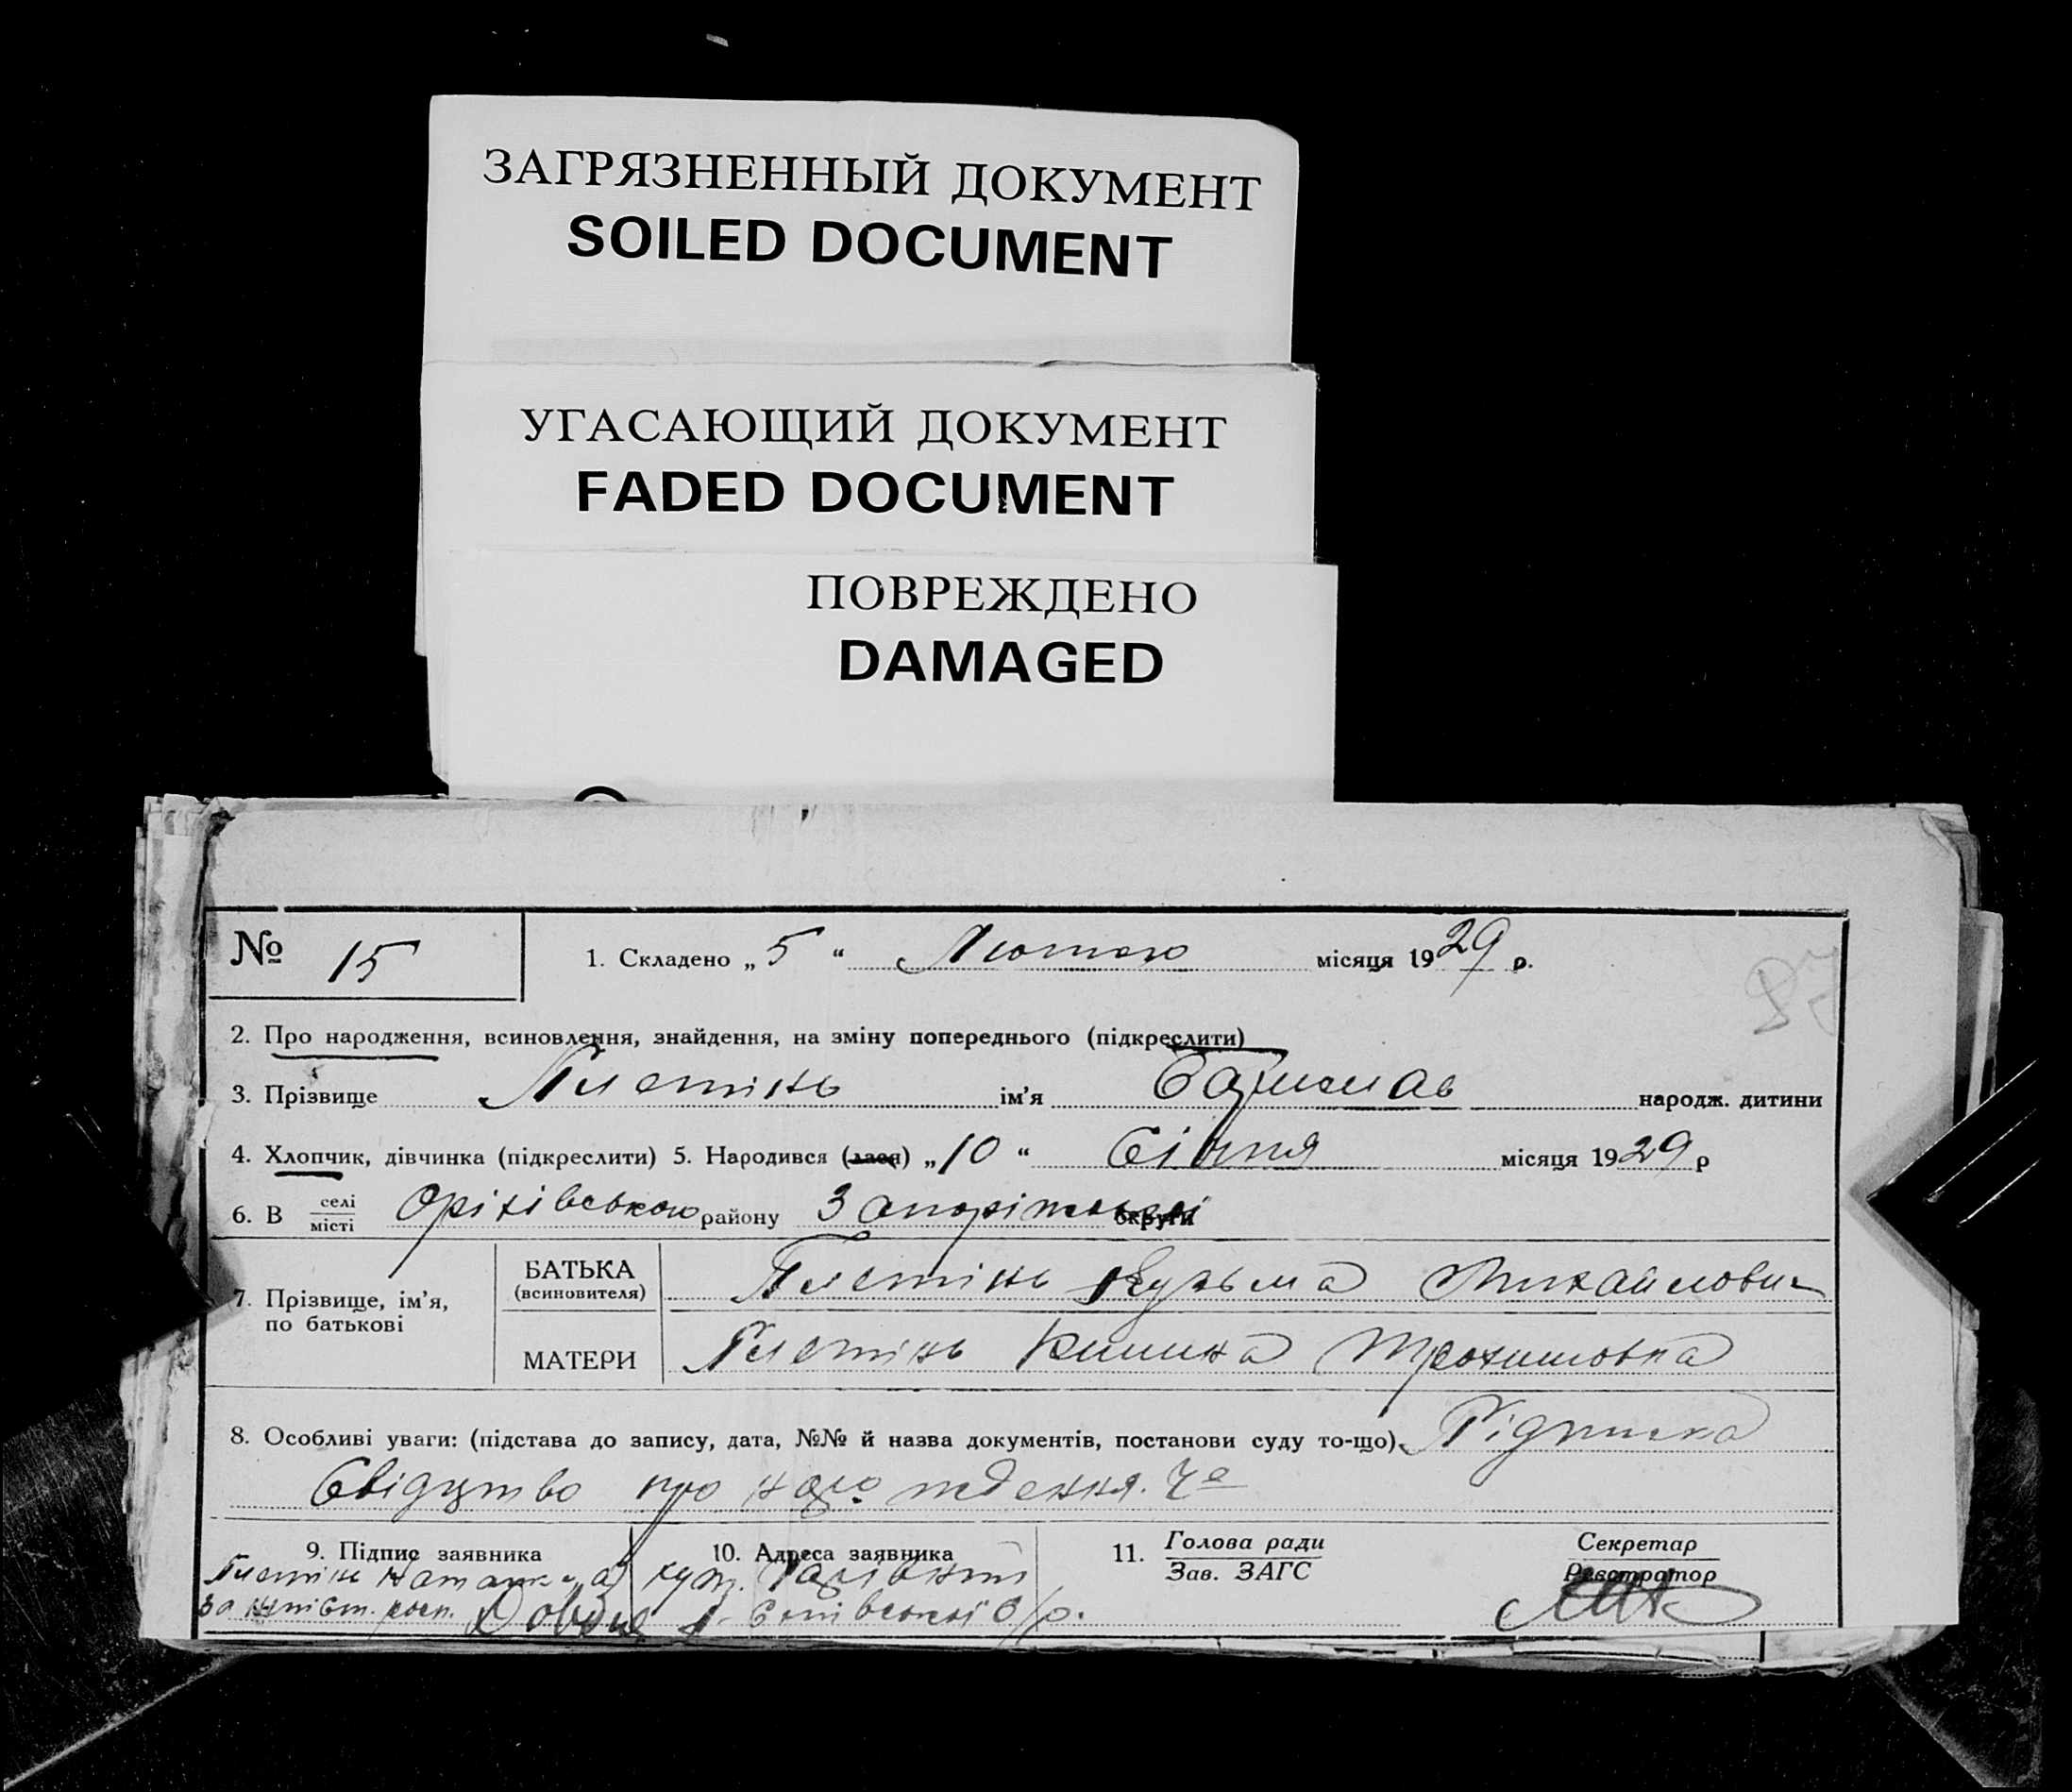 ЗАГРЯЗНЕННЫЙ ДОКУМЕНТ
SOILED DOCUMENT
УГАСАЮЩИЙ ДОКУМЕНТ
FADED DOCUMENT
ПОВРЕЖДЕНО
DAMAGED
№ 15
1. Складено „5“ Лютого місяця 1929 р.
2. Про народження, всиновлення, знайдення, на зміну попереднього (підкреслити)
3. Прізвище Плетінь ім'я народж. дитини
4. Хлопчик, дівчинка (підкреслити) 5. Народився (лася) „10“ Січня місяця 1929 р
6. В селі місті Оріхівського району Запоріжської округи
7. Прізвище, ім'я, по батькові
БАТЬКА (всиновителя) Плетінь Кузьма Михайлович
МАТЕРИ Плетінь Килина Трохимовна
8. Особливі уваги: (підстава до запису, дата, №№ й назва документів, постанови суду то-що) Підписка
Свідцтво про народження.
9. Підпис заявника
Плетінь
за
10. Адреса заявника
хут.
11. Голова ради
Зав. ЗАГС
Секретар
Реєстратор